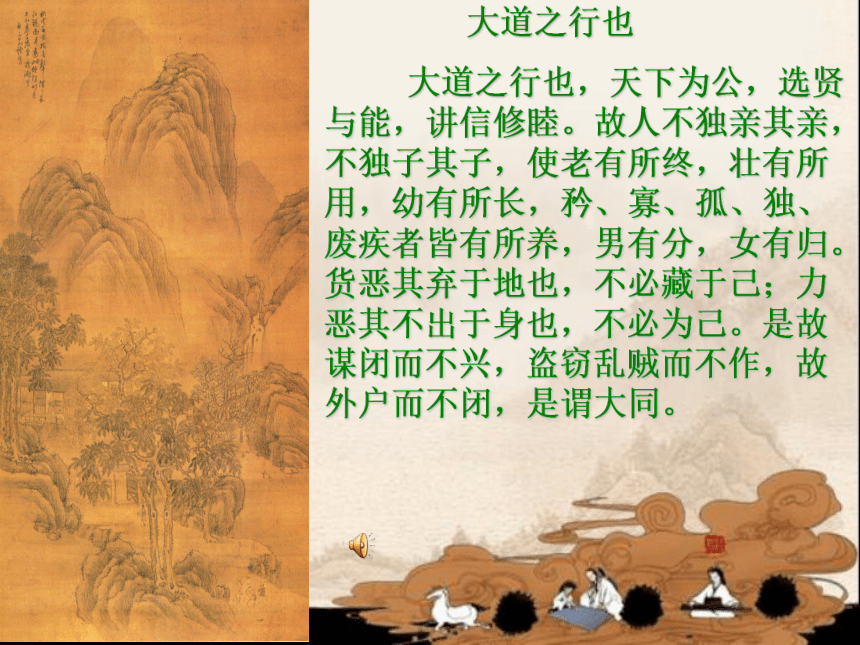 大道之行也
大道之行也，天下为公，选贤
与能，讲信修睦。故人不独亲其亲，
不独子其子，使老有所终，壮有所
用，幼有所长，矜、寡、孤、独、
废疾者皆有所养，男有分，女有归。
货恶其弃于地也，不必藏于己；力
恶其不出于身也，不必为己。是故
谋闭而不兴，盗窃乱贼而不作，故
外户而不闭，是谓大同。